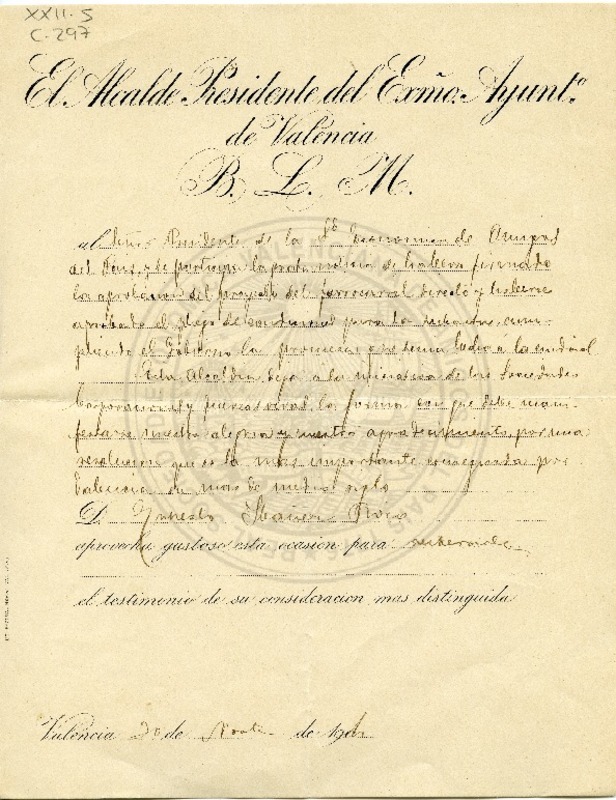 XXII. 5
C. 297
El Alcalde Presidente del Exmo. Ayunt.º
de Valéncia
B. L. M.
al Señor Presidente de la de Amigos
del Pais, y le participa la grata noticia de haberse firmado
la aprobacion del proyecto del ferrocarril directo y haberse
aprobado el pliego de condiciones para la subasta, cum-
pliendo el Gobierno la promesa que tenia hecha a la ciudad
Esta Alcaldia deja a la iniciativa de las Sociedades
Corporaciones y particulares, la forma con que debe mani-
festarse nuestra alegria y nuestro agradecimiento por una
resolucion que es la mas importante conseguida por
Valencia de mas de medio siglo
D. Ernesto Ibañez Rico
aprovecha gustoso esta ocasion para reiterarle
el testimonio de su consideracion mas distinguida
Valéncia 20 de de 19